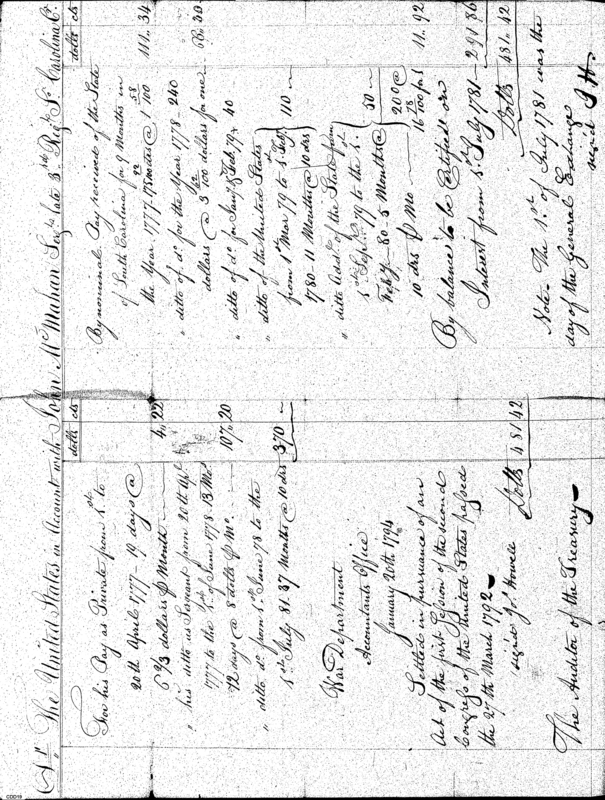 Dr. The United States in Account with John McMahan Serjt. late 3rd Regt. So. Carolina Cr.
dolls cts
For his Pay as Private from 1st to
20th April 1777 - 19 days @
6 2/3 dollars ⅌ Month 4,, 22
" his ditto as Serveant from 20th Apl.
1777 to the 1st of June 1778 13 Mos
12 days @ 8 dolls ⅌ Mo. 107,, 20
" ditto do. from 1st June 78 to the
1st July 81. 37 Months @ 10 drs 370 "
War Department
Accountants Office
January 20th 1794
Settled in pursuance of an
Act of the first Session of the second
Congress of the United States passed
the 27th March 1792
signed Jos. Howell
Dolls 481 42
The Auditor of the Treasury
dolls cts
By nominal Pay received of the State
of South Carolina for 9 Months in
the Year 1777 @ 1 58/100 111,, 34
" ditto of do. for the Year 1778 240
dollars @ 3 100 dollars for one 30
" ditto of do. for Jany & Feby 79 40
" ditto of the United States
from 1st Mar 79 to 1st Feby
1780. 11 Months @ 10 drs 110
" ditto Addl. of the State from
1st Sept. 79 to the 1st
Feby 80. 5 Months @
10 drs ⅌ Mo 50
200 @
16 78/100 for 1 11,, 92
By balance to be Certified on
Interest from 1st July 1781 291 86
Dolls 481 42
Note. The 1st of July 1781 was the
day of the General Exchange
signed J H.
CDD19